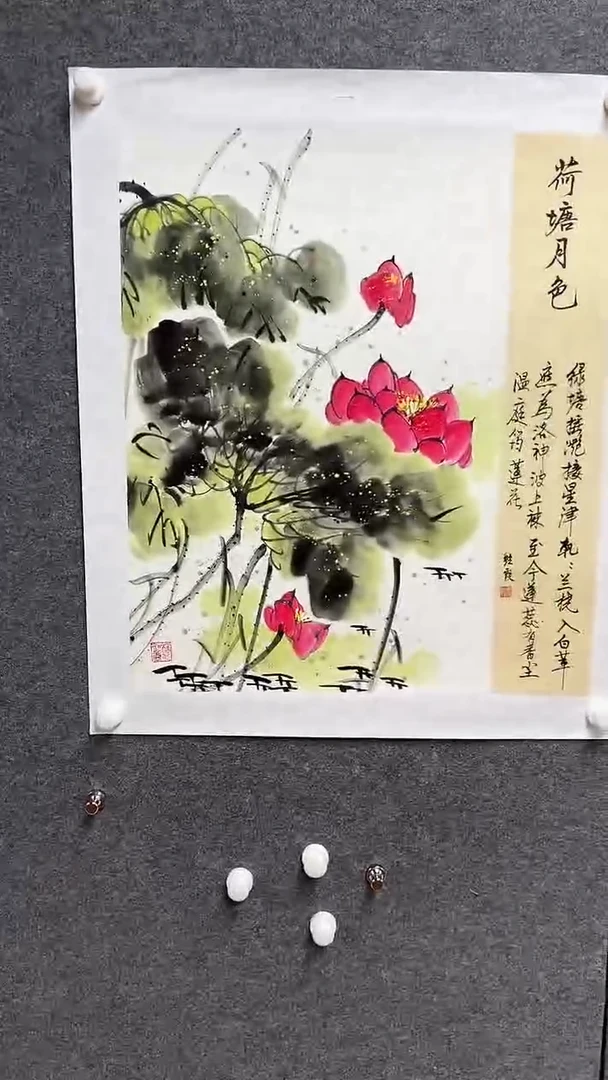 荷塘月色
绿塘摇滟接星津轧々兰桡入白苹
應為洛神波上袜至今蓮蕊有香尘
温庭筠蓮花